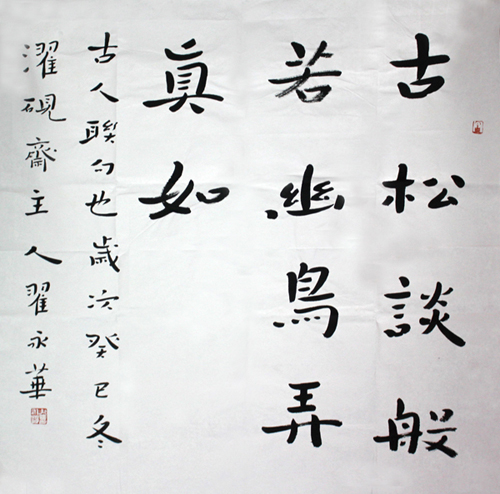 古松談般
若幽鳥弄
真如
古人聯句也歲次癸巳冬
濯硯齋主人翟永華